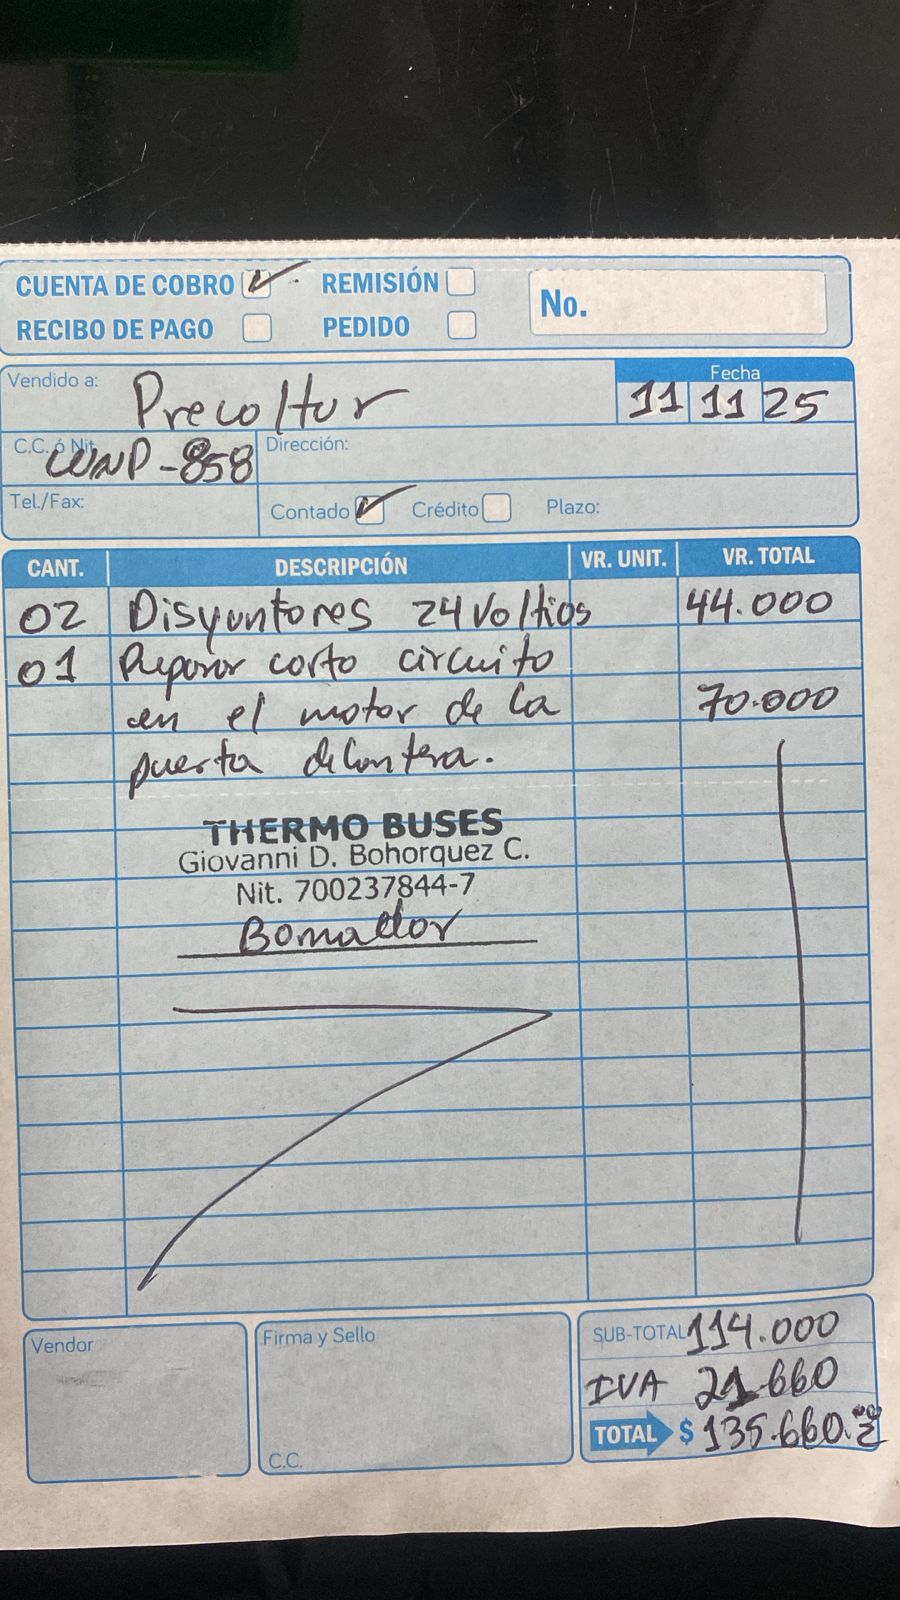 CUENTA DE COBRO REMISIÓN No.
RECIBO DE PAGO PEDIDO
Vendido a: Precoltur
Fecha
11 11 25
C.C. ó Nit. -858 Dirección:
Tel./Fax: Contado Crédito Plazo:
CANT. DESCRIPCIÓN VR. UNIT. VR. TOTAL
02 Disyuntores 24 Voltios 44.000
01 Reparar corto circuito
en el motor de la 70.000
puerta delantera.
THERMO BUSES
Giovanni D. Bohorquez C.
Nit. 700237844-7
Vendor Firma y Sello SUB-TOTAL 114.000
IVA 21.660
C.C. TOTAL $ 135.660.